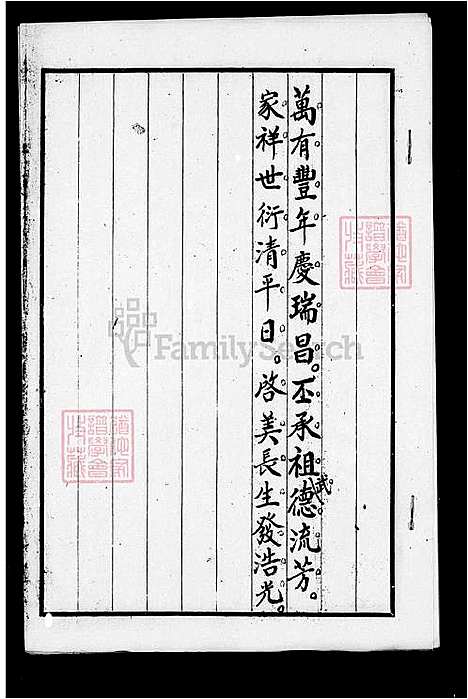 萬有豐年慶瑞昌。丕承祖德流芳。
武。
家祥世衍清平日。啓美長生發浩光。
FamilySearch